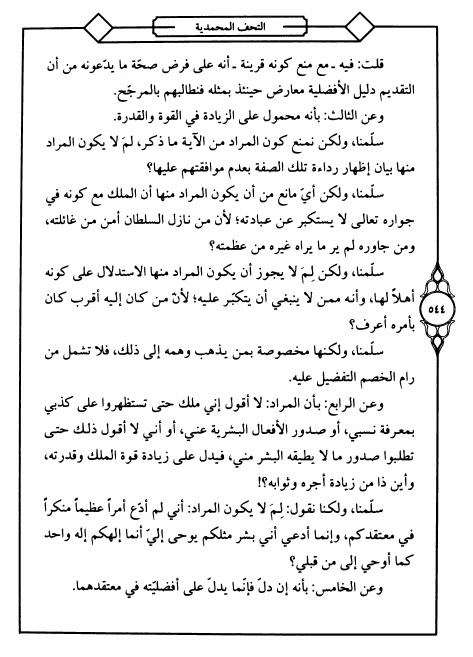 التحف المحمدية
قلت: فيه ـ مع منع كونه قرينة ـ أنه على فرض صحّة ما يدّعونه من أن
التقديم دليل الأفضلية معارض حينئذ بمثله فنطالبهم بالمرجّح.
وعن الثالث: بأنه محمول على الزيادة في القوة والقدرة.
سلّمنا، ولكن نمنع كون المراد من الآية ما ذكر، لمَ لا يكون المراد
منها بيان إظهار رداءة تلك الصفة بعدم موافقتهم عليها؟
سلّمنا، ولكن أيّ مانع من أن يكون المراد منها أن الملك مع كونه في
جواره تعالى لا يستكبر عن عبادته؛ لأن من نازل السلطان أمن من غائلته،
ومن جاوره لم ير ما يراه غيره من عظمته؟
سلّمنا، ولكن لِمَ لا يجوز أن يكون المراد منها الاستدلال على كونه
أهلاً لها، وأنه ممن لا ينبغي أن يتكبّر عليه؛ لأنّ من كان إليه أقرب كان
بأمره أعرف؟
٥٤٤
سلّمنا، ولكنها مخصوصة بمن يذهب وهمه إلى ذلك، فلا تشمل من
رام الخصم التفضيل عليه.
وعن الرابع: بأن المراد: لا أقول إني ملك حتى تستظهروا على كذبي
بمعرفة نسبي، أو صدور الأفعال البشرية عني، أو أني لا أقول ذلك حتى
تطلبوا صدور ما لا يطيقه البشر مني، فيدل على زيادة قوة الملك وقدرته،
وأين ذا من زيادة أجره وثوابه؟!
سلّمنا، ولكنا نقول: لِمَ لا يكون المراد: أني لم أدّع أمراً عظيماً منكراً
في معتقدكم، وإنما أدعي أني بشر مثلكم يوحى إليّ أنما إلهكم إله واحد
كما أوحي إلى من قبلي؟
وعن الخامس: بأنه إن دلّ فإنّما يدلّ على أفضليّته في معتقدهما.